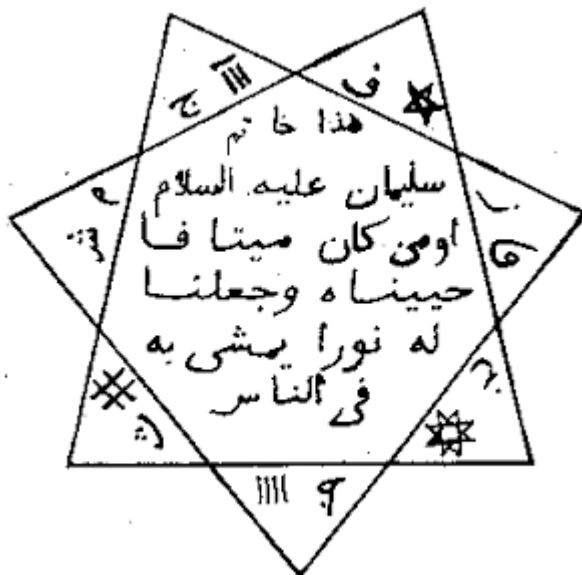 هذا خا تم
سليمان عليه السلام
اومن كان ميتا فا
حييناه وجعلنا
له نورا يمشى به
فى الناس
ف
ج
م
ش
ز